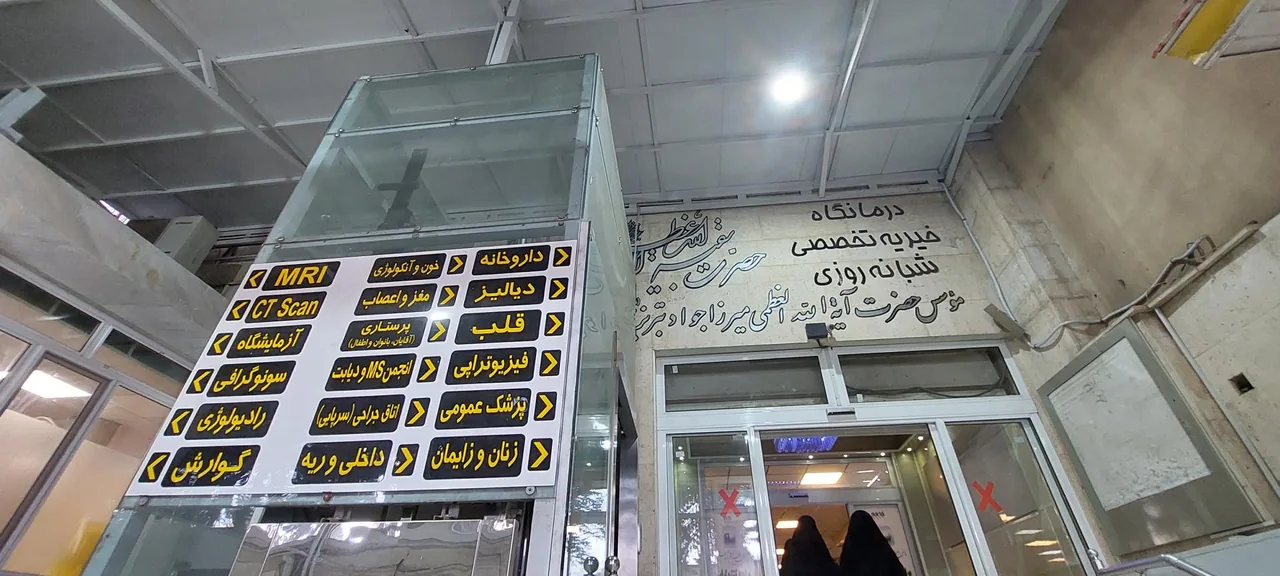 داروخانه
خون و آنکولوژی
MRI
دیالیز
مغز و اعصاب
CT Scan
قلب
پرستاری
(آقایان، بانوان و اطفال)
آزمایشگاه
فیزیوتراپی
انجمن MS و دیابت
سونوگرافی
پزشک عمومی
اتاق جراحی (سرپایی)
رادیولوژی
زنان و زایمان
داخلی و ریه
گوارش
درمانگاه
خیریه تخصصی
شبانه روزی
حضرت بقیة الله
موسس حضرت آیة الله العظمی میرزا جواد تبریزی